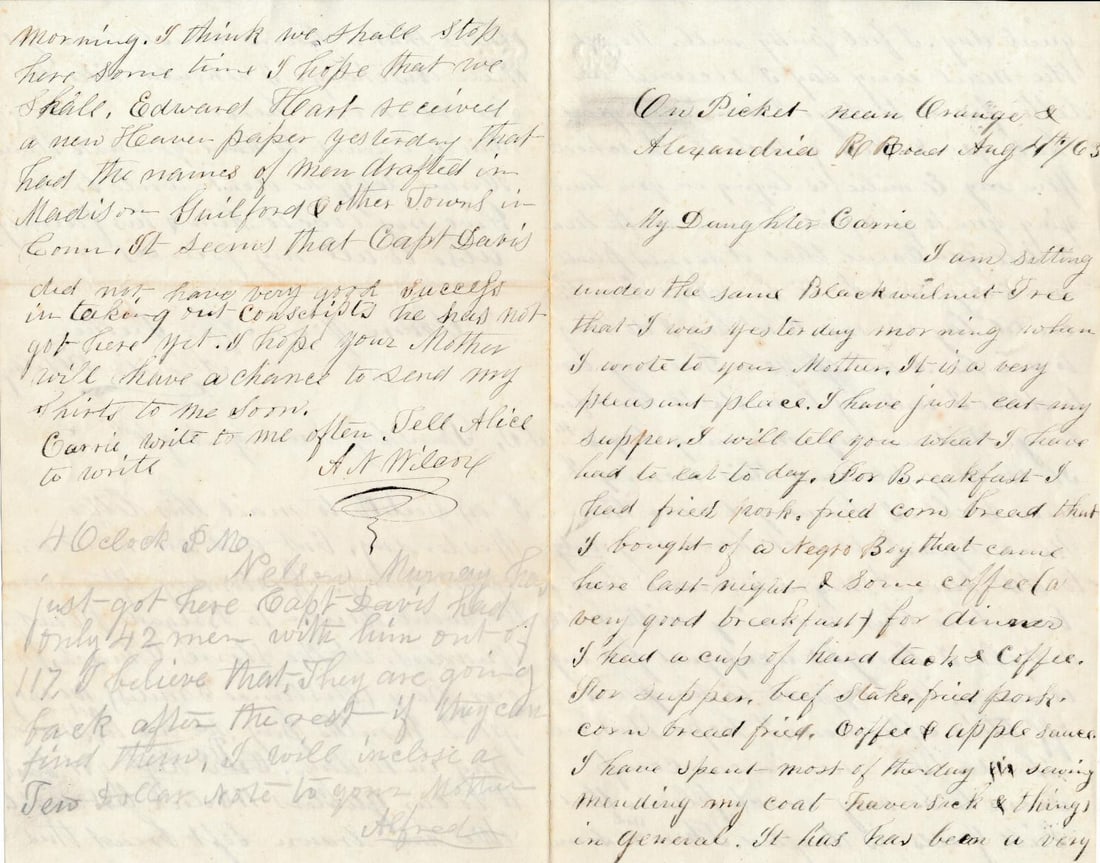 On Picket near Orange &
Alexandria R Road Aug 4th/63
My Daughter Carrie
I am sitting
under the same Blackwalnut Tree
that I was yesterday morning when
I wrote to your Mother. It is a very
pleasant place. I have just eat my
supper. I will tell you what I have
had to eat to day. For Breakfast I
had fried pork. fried corn bread that
I bought of a Negro Boy that came
here last night & some coffee (a
very good breakfast) for dinner
I had a cup of hard tack & Coffee.
For supper. beef stake. fried pork.
corn bread fried. Coffee & apple sauce
I have spent most of the day in sewing
mending my coat Haversack & things
in general. It has has been a very
morning. I think we shall stop
here some time I hope that we
shall. Edward Hart received
a new Haven paper yesterday that
had the names of men drafted in
Madison Guilford & other Towns in
Conn. It seems that Capt Davis
did not have very good success
in taking out conscripts he has not
got here yet. I hope your Mother
will have a chance to send my
shirts to me soon.
Carrie write to me often. Tell Alice
to write A N Wilcox
4 Oclock P M
Nelson Murray has
just got here Capt Davis had
only 42 men with him out of
117. I believe that They are going
back after the rest if they can
find them, I will inclose a
Ten Dollar Note to your Mother
Alfred